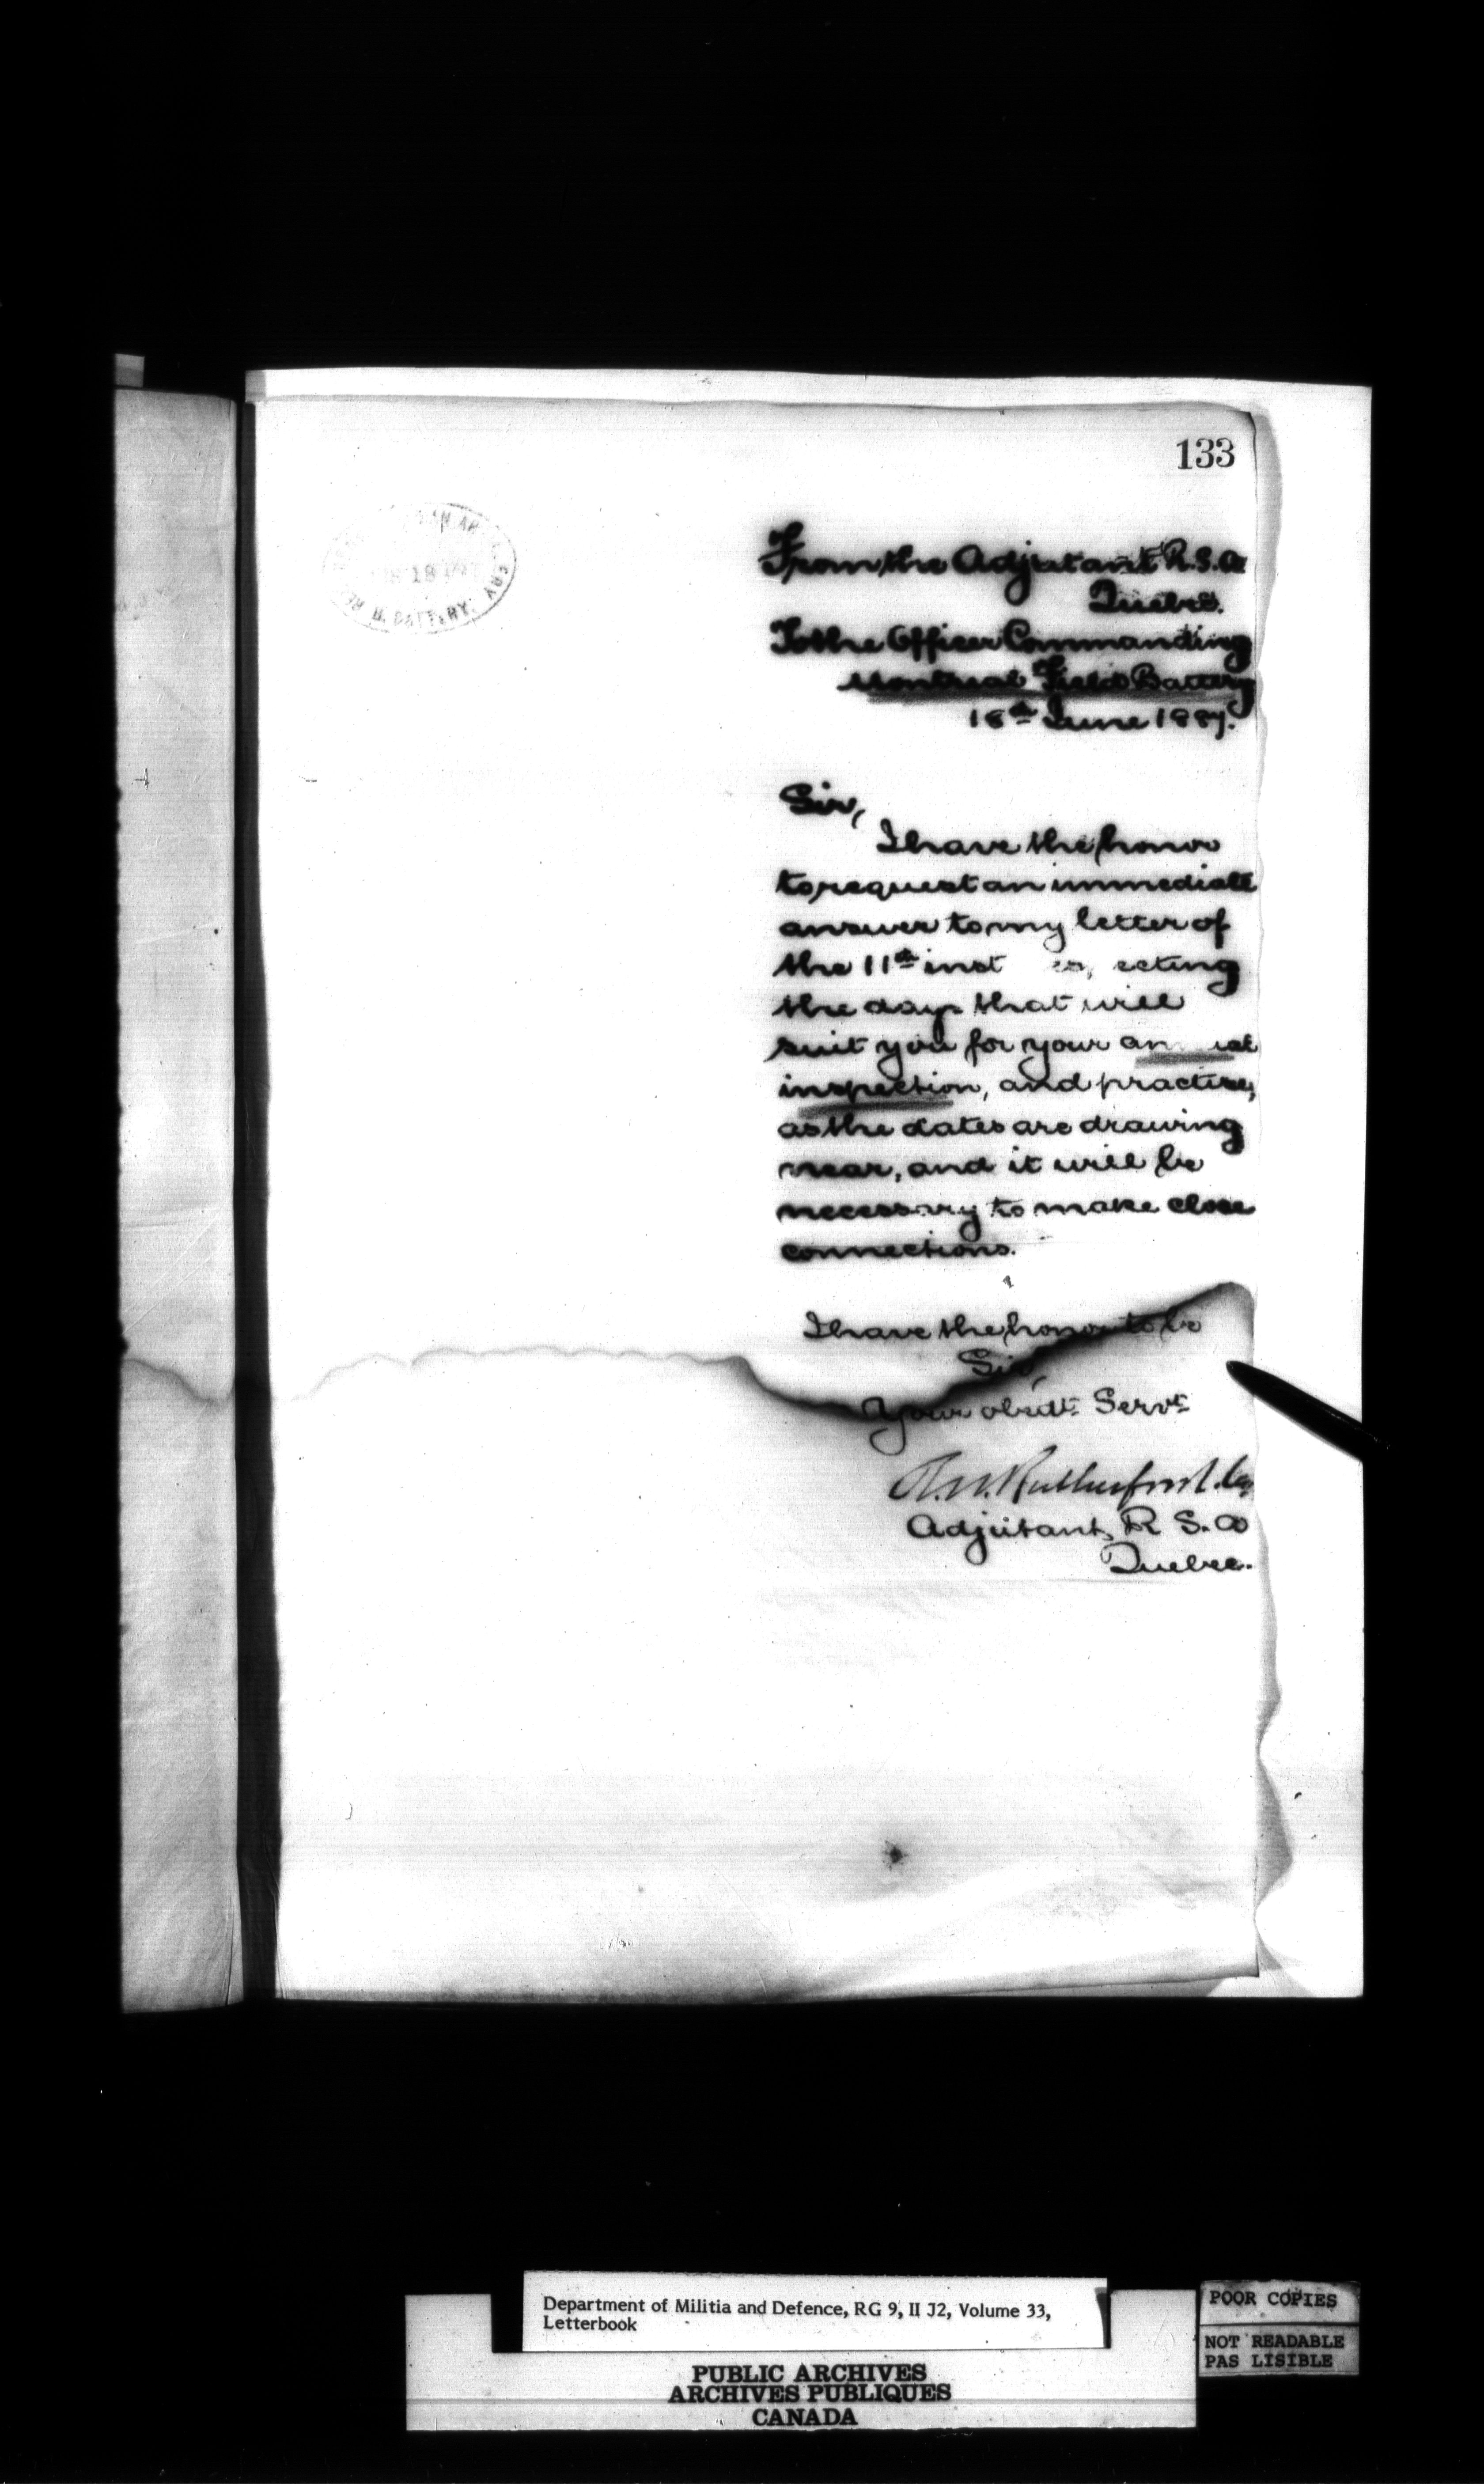 133
18
B. BATTERY.
From the Adjutant R.S.A
Quebec.
To the Officer Commanding
Montreal Field Battery
18th June 1887.
Sir,
I have the honor
to request an immediate
answer to my letter of
the 11th inst ecting
the days that will
suit you for your an ual
inspection, and practise,
as the dates are drawing
near, and it will be
necessary to make close
connections.
I have the honor to be
Sir,
Your obedt. Servt
Rutherford.
Adjutant, R S. A
Quebec.
Department of Militia and Defence, RG 9, II J2, Volume 33,
Letterbook
PUBLIC ARCHIVES
ARCHIVES PUBLIQUES
CANADA
POOR COPIES
NOT READABLE
PAS LISIBLE